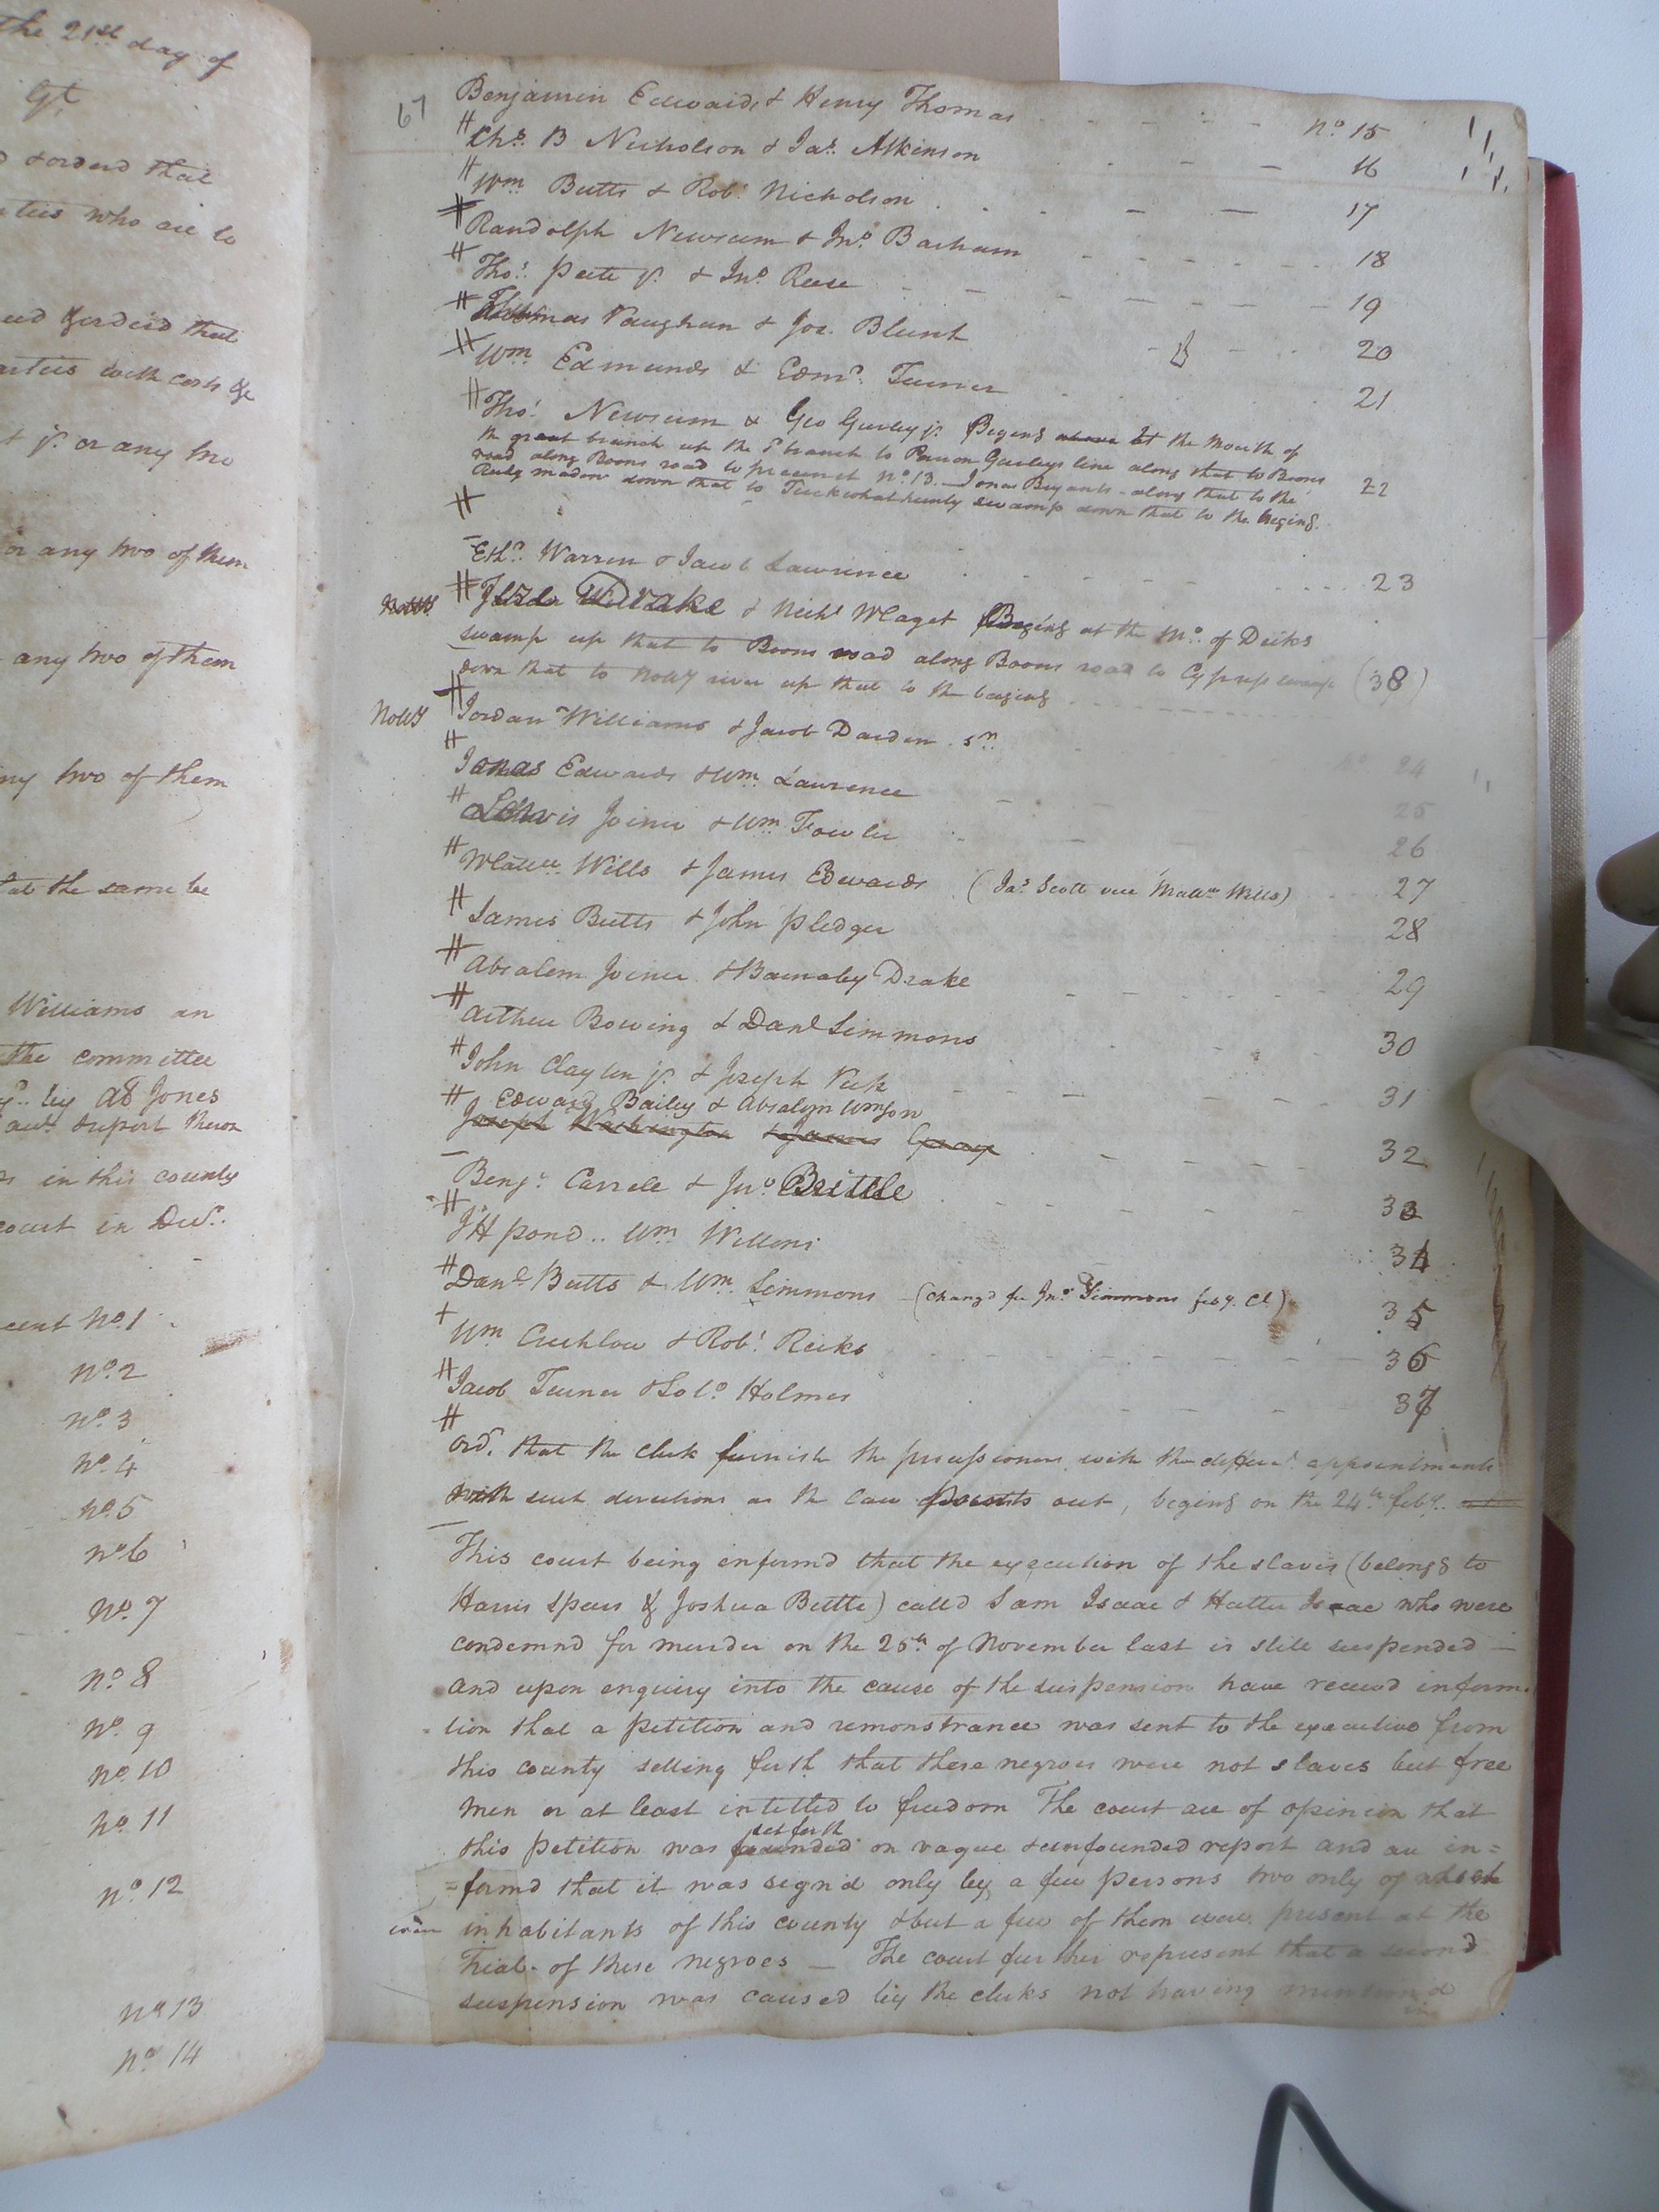 the 21st day of
&c
orderd that
ties who are to
eed & orderd that
arties with costs &c
jr. or any two
or any two of them
any two of them
any two of them
that the same be
Williams an
the committee
by A8 Jones
in this county
court in Decr.
cent No. 1
No. 2
No. 3
No. 4
No. 5
No. 6
No. 7
No. 8
No. 9
No. 10
No. 11
No. 12
No. 13
No. 14
67
Benjamin Edwards & Henry Thomas No. 15
Chs. B Nicholson & Jas. Atkinson 16
Wm Butts & Robt. Nicholson 17
Randolph Newsum & Jno. Barham 18
Thos. Peete jr. & Jno. Reese 19
Thomas Vaughan & Jos. Blunt 20
Wm Edmunds & Edmd. Turner 21
Thos. Newsum & Geo Gurley jr. Begins at the mouth of
the great branch up the sd branch to Parson Gurleys line along that to Boons
road along Boons road to precinct No. 13. Jonas Bryants along that to the
meadow down that to Tuckwhathunty swamp down that to the begins. 22
Ethd. Warren & Jacob Lawrence 23
Drake & Nichs Maget Begins at the Mo. of Deeks
swamp up that to Boons road along Boons road to Cypress swamp (38)
down that to Notty river up that to the begins
Notty Jordan Williams & Jacob Darden Sr. No. 24
Jonas Edwards & Wm. Lawrence 25
Lewis Joiner & Wm. Fowler 26
Mattw. Wills & James Edwards (Jas. Scott vice Mattw Wills) 27
James Butts & John Pledger 28
Absalem Joiner & Barnaby Drake 29
Arthur Bowing & Danl Simmons 30
John Clayton jr. & Joseph Vick 31
Edward Bailey & Absalom Wmson
Joseph Washington & James Gray 32
Benjn. Carrele & Jno. Brittle 33
JH Pond .. Wm Wellons 34
Danl Butts & Wm. Simmons (changd for Jno. Simmons feby. Ct.) 35
Wm Cruchlow & Robt. Ricks 36
Jacob Turner & Solo. Holmes 37
Ord. that the clerk furnish the processioners with the differt. appointments
with such directions as the law points out, begins on the 24th feby.
This court being informd that the execution of the slaves (belongs to
Harris Spears & Joshua Bettle) calld Sam Isaac & Hatter Isaac who were
condemnd for murder on the 25th of November last is still suspended —
and upon enquiry into the cause of the suspension have receivd informa
tion that a petition and remonstrance was sent to the executive from
this county setting forth that these negroes were not slaves but free
men or at least intitled to freedom The court are of opinion that
set forth
this petition was founded on vague & unfounded report and are in=
=formd that it was signd only by a few persons two only of which
inhabitants of this county & but a few of them were present at the
Trial of these negroes — The court further represent that a second
suspension was caused by the clerks not having mentiond